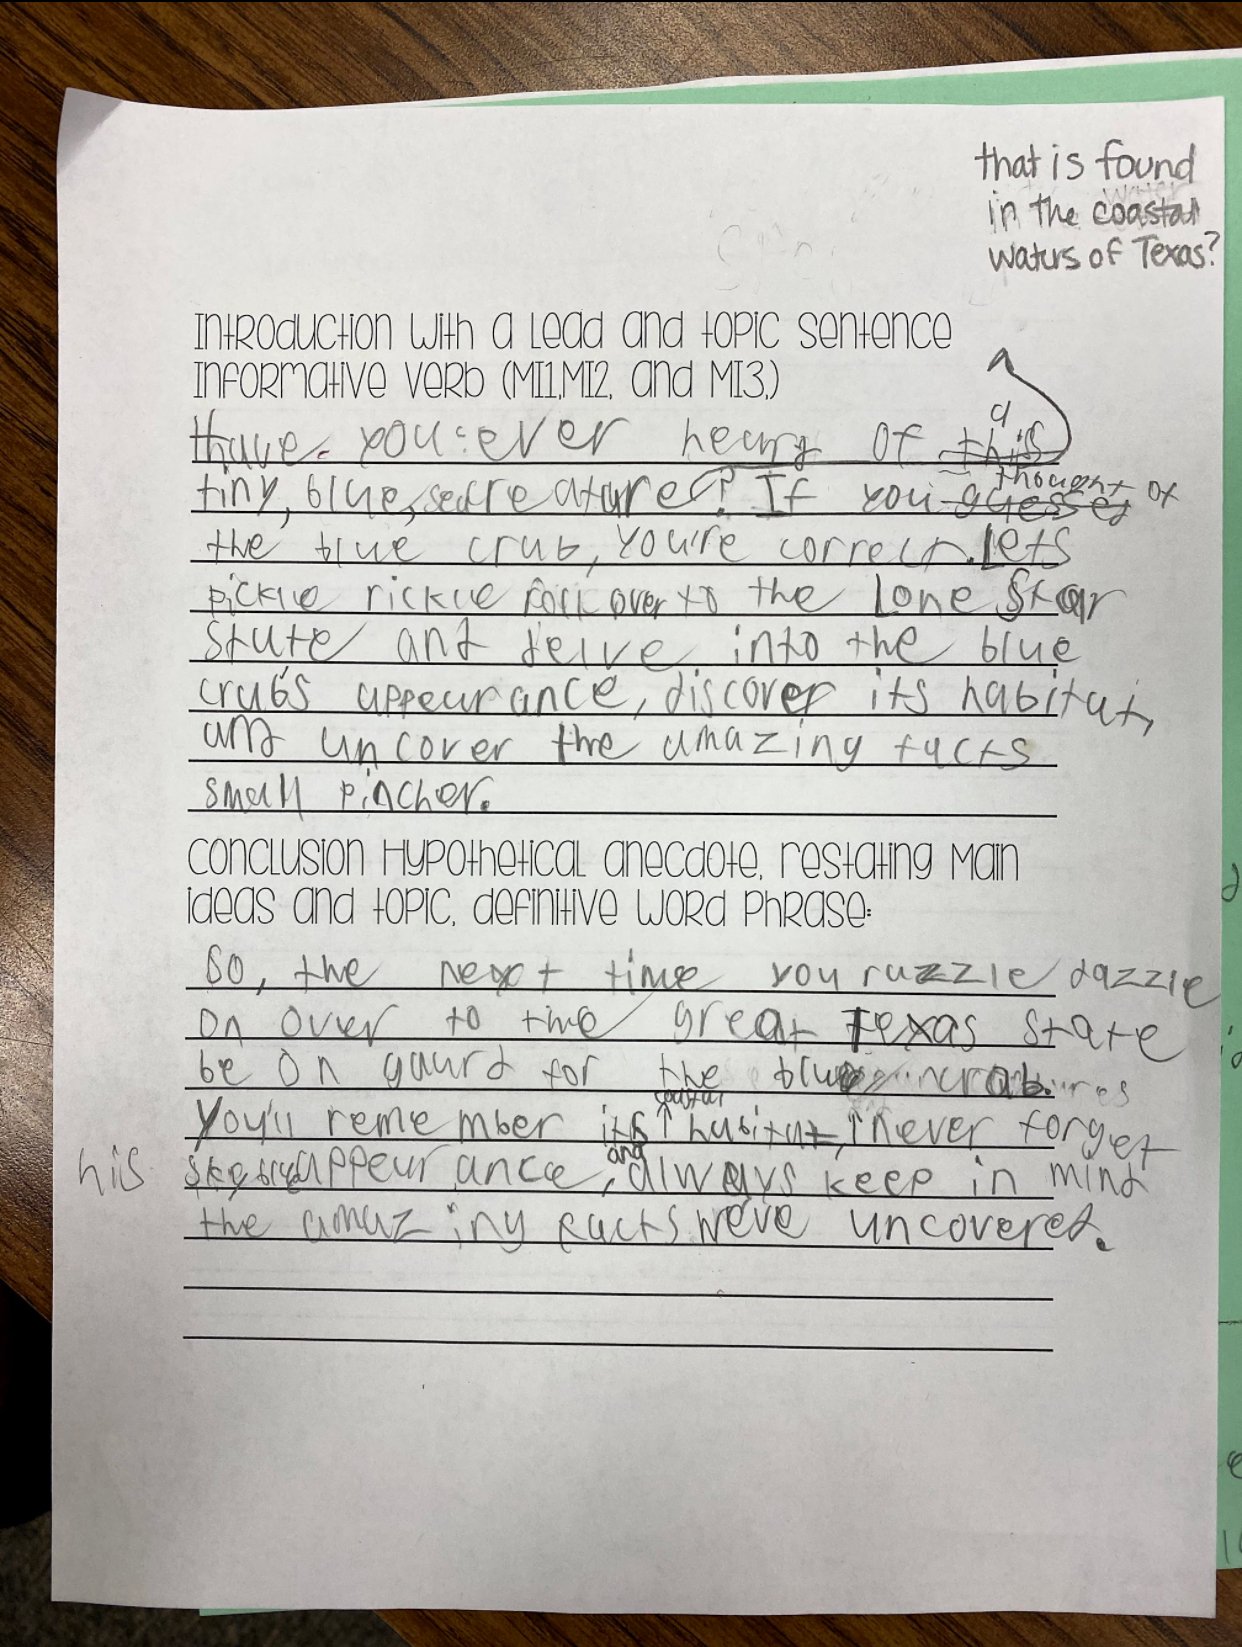 that is found
in the coastal
waturs of Texas?
Introduction with a Lead and topic sentence
Informative verb (MI1,MI2, and MI3,)
Have you ever heary of this
a
tiny, blue, sea creature? If you guessed
thought of
the blue crab, you're correct. Lets
pickle rickle roll over to the Lone Star
State and delve into the blue
crab's appearance, discover its habitat,
and uncover the amazing facts
small pincher.
Conclusion Hypothetical anecdote, restating Main
ideas and topic, definitive word phrase:
So, the next time you razzle dazzle
on over to the great Texas State
be on gaurd for the blue crab.
coastal
You'll remember its habitat, never forget
and
his appearance, always keep in mind
the amazing facts we've uncovered.